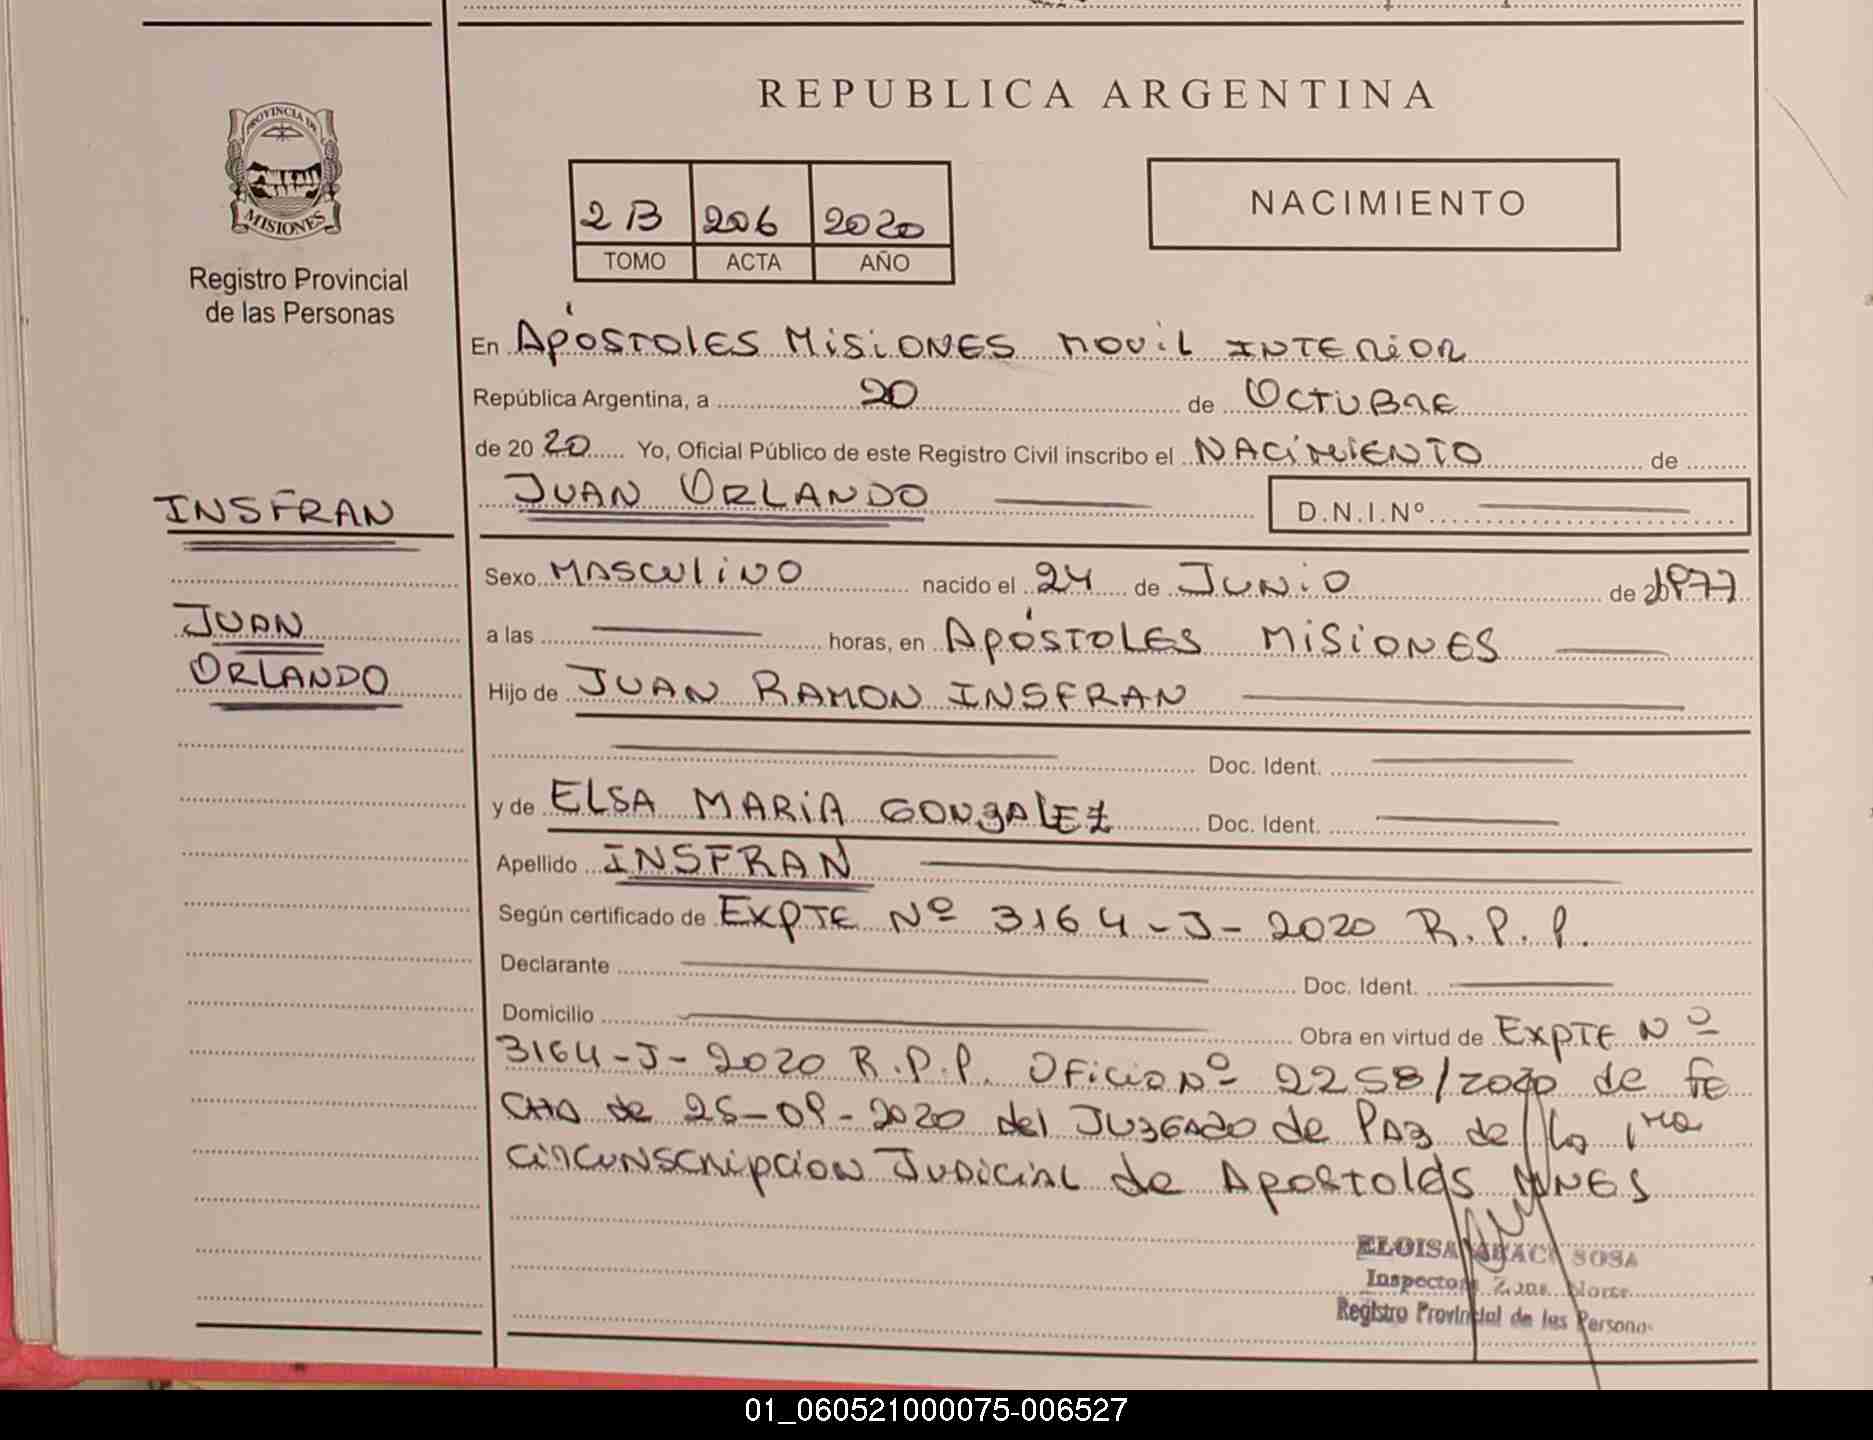 REPUBLICA ARGENTINA
PROVINCIA DE
MISIONES
Registro Provincial
de las Personas
2B 206 2020
TOMO ACTA AÑO
NACIMIENTO
En APÓSTOLES MISIONES MOVIL INTERIOR
República Argentina, a 20 de OCTUBRE
de 20 20 Yo, Oficial Público de este Registro Civil inscribo el NACIMIENTO de
JUAN ORLANDO D.N.I.Nº
INSFRAN
JUAN
ORLANDO
Sexo MASCULINO nacido el 24 de JUNIO de 1977
a las horas, en APÓSTOLES MISIONES
Hijo de JUAN RAMON INSFRAN
Doc. Ident.
y de ELSA MARIA GONZALEZ Doc. Ident.
Apellido INSFRAN
Según certificado de EXPTE Nº 3164-J-2020 R.P.P.
Declarante Doc. Ident.
Domicilio Obra en virtud de EXPTE Nº
3164-J-2020 R.P.P. OFICIO Nº 2258/2020 de FE
CHA de 25-09-2020 del JUZGADO de PAZ de la 1ra
CIRCUNSCRIPCION JUDICIAL de APOSTOLES MNES
ELOISA SOSA
Inspectora Zona Norte
Registro Provincial de las Personas
01_060521000075-006527